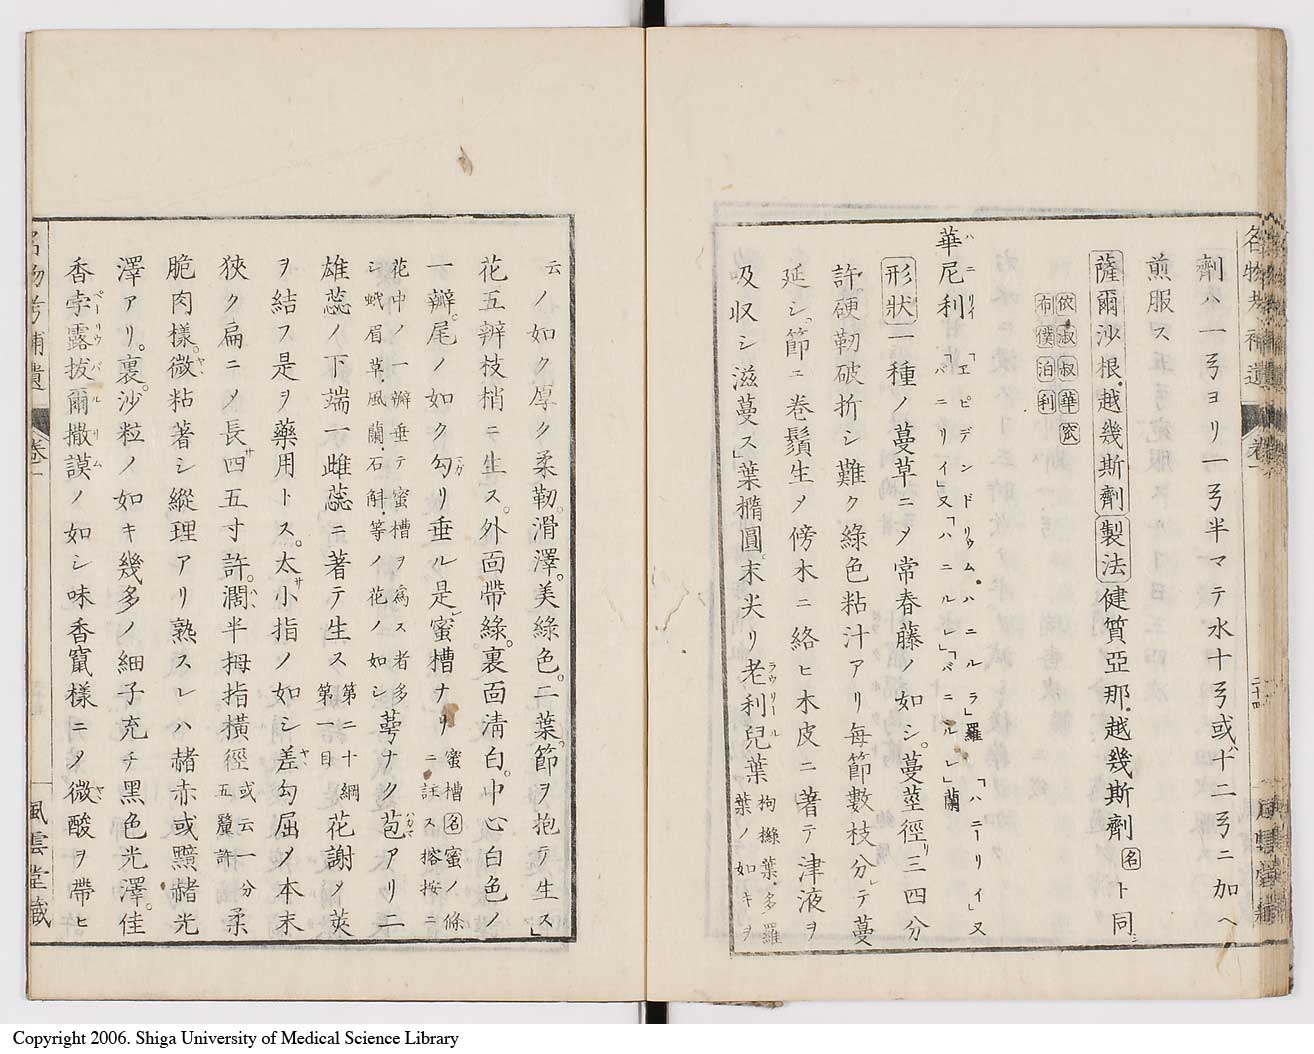 劑ハ一弓ヨリ一弓半マテ水十弓或ハ十二弓ニ加ヘ
煎服ス
薩爾沙根越幾斯劑 製法 健質亞那越幾斯劑名ト同シ
依淑叔華
布僕泊利
華尼利 ハニリイ 「エピデンドリウム。ハニルラ」羅「ハニーリイ」又「バニリイ」又「ハニルレ」「バニルレ」蘭
形狀 一種ノ蔓草ニメ常春藤ノ如シ。蔓莖徑リ三四分
許硬韌破折シ難ク綠色粘汁アリ每節數枝分レテ蔓
延シ。節ニ卷鬚生メ傍木ニ絡ヒ木皮ニ著テ津液ヲ
吸收シ滋蔓ス」葉橢圓。末尖リ老利兒葉 ラウリール 枸櫞葉・多羅葉ノ如キヲ
云ノ如ク厚ク柔韌。滑澤。美綠色。二葉。節ヲ抱テ生ス」
花五辨枝梢ニ生ス。外面帶綠。裏面淸白。中心白色ノ
一瓣。尾ノ如ク勾リ垂ル是」蜜槽ナリ 蜜槽名蜜ノ條ニ註ス㨢按ニ
花中ノ一瓣垂テ蜜槽ヲ爲ス者多シ蛾眉草・風蘭・石斛・等ノ花ノ如シ 萼ナク苞アリ二
雄蕊ノ下端一雌蕊ニ著テ生ス 第二十綱第一目 花謝メ莢
ヲ結フ是ヲ藥用トス。太サ小指ノ如シ差ヤ勾屈メ本末
狹ク扁ニメ長サ四五寸許。濶ハ半拇指橫徑 或云一分五釐許 柔
脆肉樣。微ヤ粘著シ縱理アリ熟スレハ赭赤或黯赭光
澤アリ。裏。沙粒ノ如キ幾多ノ細子充チ黑色光澤。佳
香孛露拔爾撒謨 ペーリウバルサム ノ如シ味香竄樣ニメ微ヤ酸ヲ帶ヒ
名物考補遺 卷一 二十四
風雲堂藏
Copyright 2006. Shiga University of Medical Science Library